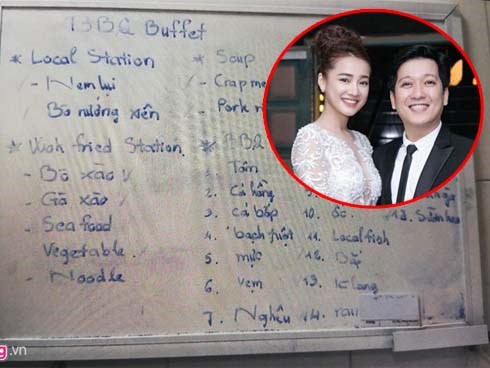 BBQ Buffet
* Local Station
- Nem lụi
- Bò nướng xiên
* Wok fried Station
- Bò xào
- Gà xào
- Sea food
Vegetable
- Noodle
* Soup
- Crap me
- Pork
* BBQ
1. Tôm
2. Cá hồng
3. cá bớp
4. bạch tuột
5. mực
6. Vẹm
7. Nghêu
10. ốc
11. Local fish
12. Bắp
13. K lang
14. rau
.vn